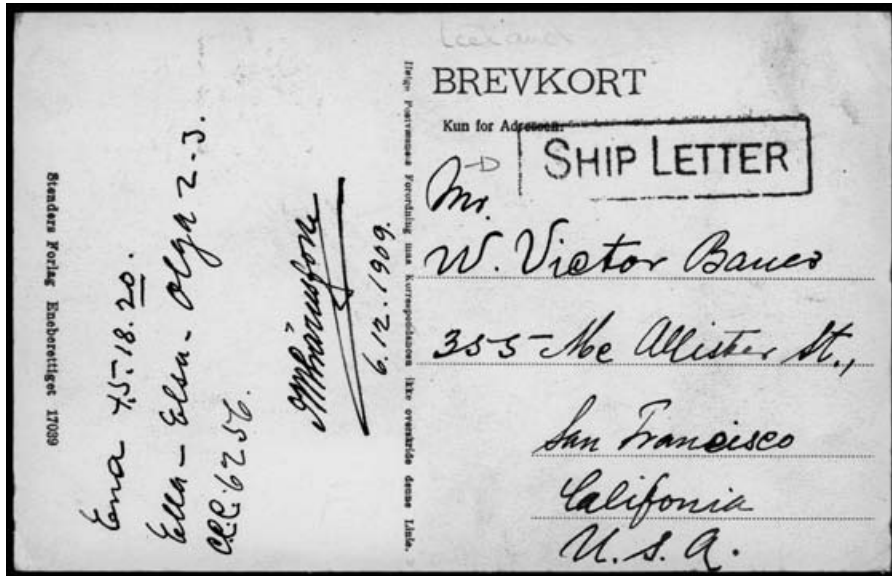 Iceland
BREVKORT
Kun for Adressen.
SHIP LETTER
Mr.
W. Victor Bauer
355 Mc Allister St.,
San Francisco
Califonia
U. S. A.
Ifølge Postvæsenets Forordning maa Korrespondancen ikke overskride denne Linie.
6.12.1909.
Ella – Elsa – Olga 2-3.
C.C.C. 6256.
Stenders Forlag Eneberettiget 17039